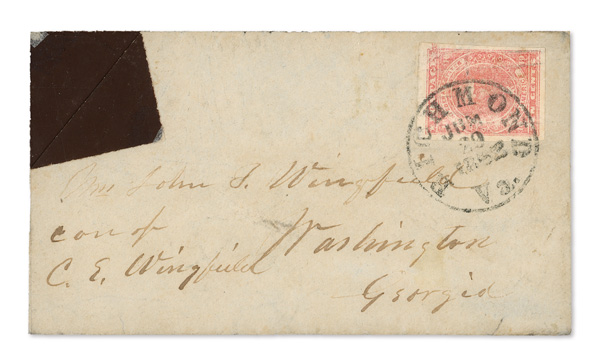 RICHMOND Va.
JUN
1862
Mrs John T. Wingfield
care of
Washington
C. E. Wingfield
Georgia